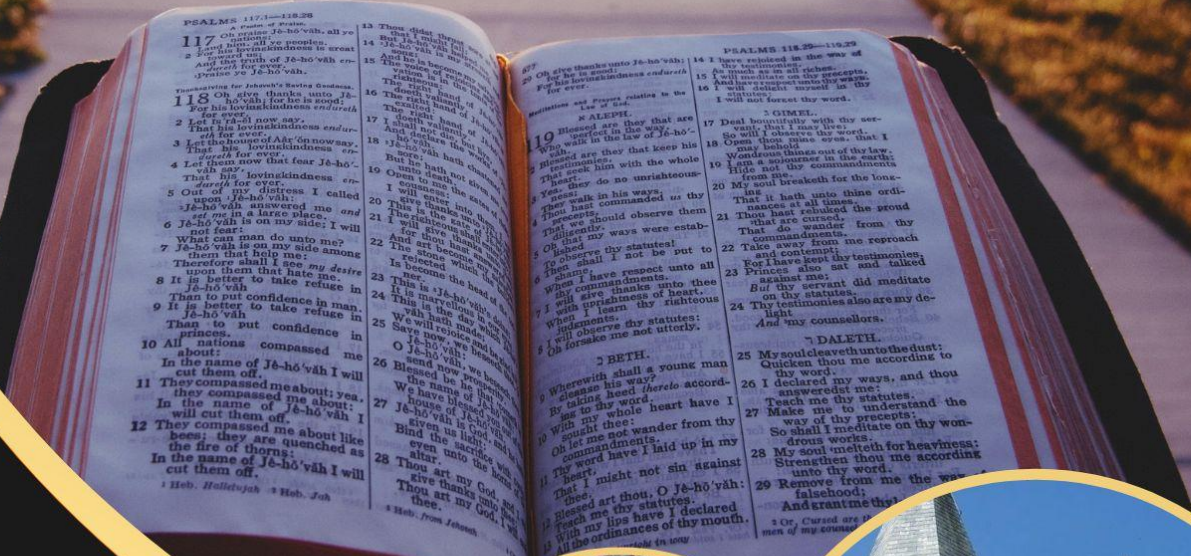 PSALMS 117.1—118.28
A Psalm of Praise.
117 Oh praise Jê-hō´vȧh, all ye
nations;
Laud him, all ye peoples.
2 For his lovingkindness is great
toward us;
And the truth of Jê-hō´vȧh en-
dureth for ever.
¹Praise ye Jê-hō´vȧh.
Thanksgiving for Jehovah's Saving Goodness.
118 Oh give thanks unto Jê-
hō´vȧh; for he is good;
For his lovingkindness endureth
for ever.
2 Let Ĭs´rȧ-ĕl now say,
That his lovingkindness endur-
eth for ever.
3 Let the house of Aâr´ȯn now say,
That his lovingkindness en-
dureth for ever.
4 Let them now that fear Jê-hō´-
vȧh say,
That his lovingkindness en-
dureth for ever.
5 Out of my distress I called
upon ²Jê-hō´vȧh:
²Jê-hō´vȧh answered me and
set me in a large place.
6 Jê-hō´vȧh is on my side; I will
not fear:
What can man do unto me?
7 Jê-hō´vȧh is on my side among
them that help me:
Therefore shall I see my desire
upon them that hate me.
8 It is better to take refuge in
Jê-hō´vȧh
Than to put confidence in man.
9 It is better to take refuge in
Jê-hō´vȧh
Than to put confidence in
princes.
10 All nations compassed me
about:
In the name of Jê-hō´vȧh I will
cut them off.
11 They compassed me about; yea,
they compassed me about:
In the name of Jê-hō´vȧh I
will cut them off.
12 They compassed me about like
bees; they are quenched as
the fire of thorns:
In the name of Jê-hō´vȧh I will
cut them off.
¹ Heb. Hallelujah ² Heb. Jah
13 Thou didst thrust
that I might fall
But Jê-hō´vȧh helped
14
song;
And he is become my
15 The voice of rejoicing
vation is in the
righteous:
The right hand
doeth valiantly.
16 The right hand
exalted
The right hand of
doeth valiantly.
17 I shall not die, but
And declare the works
18 ²Jê-hō´vȧh hath chastened
sore;
But he hath not given
unto death.
19 Open to me the gates
eousness:
I will enter into them,
give thanks
20 This is the gate of
The righteous shall
21 I will give thanks
for thou hast answered
And art become my
22 The stone which the
rejected
Is become the head of
ner.
23 This is ³Jê-hō´vȧh's
It is marvellous in our
24 This is the day which
vȧh hath made;
We will rejoice and be
25 Save now, we beseech
O Jê-hō´vȧh:
O Jê-hō´vȧh, we beseech
send now prosperity.
26 Blessed be he that
the name of
We have blessed you
house of Jê-hō´vȧh.
27 Jê-hō´vȧh is God, and
given us light:
Bind the sacrifice with
even unto the horns
altar.
28 Thou art my God, and
give thanks unto
Thou art my God, I will
thee.
³ Heb. from Jehovah.
PSALMS 118.29—119.29
29 Oh give thanks unto Jê-hō´vȧh;
for he is good;
For his lovingkindness endureth
for ever.
Meditations and Prayers relating to the
Law of God.
א ALEPH.
119 Blessed are they that are
perfect in the way,
Who walk in the law of Jê-hō´-
vȧh.
2 Blessed are they that keep his
testimonies,
That seek him with the whole
heart.
3 Yea, they do no unrighteous-
ness;
They walk in his ways.
4 Thou hast commanded us thy
precepts,
That we should observe them
diligently.
5 Oh that my ways were estab-
lished
To observe thy statutes!
6 Then shall I not be put to
shame,
When I have respect unto all
thy commandments.
7 I will give thanks unto thee
with uprightness of heart,
When I learn thy righteous
judgments.
8 I will observe thy statutes:
Oh forsake me not utterly.
ב BETH.
9 Wherewith shall a young man
cleanse his way?
By taking heed thereto accord-
ing to thy word.
10 With my whole heart have I
sought thee:
Oh let me not wander from thy
commandments.
11 Thy word have I laid up in my
heart,
That I might not sin against
thee.
12 Blessed art thou, O Jê-hō´vȧh:
Teach me thy statutes.
13 With my lips have I declared
All the ordinances of thy mouth.
14 I have rejoiced in the way of
thy testimonies,
As much as in all riches.
15 I will meditate on thy precepts,
And have respect unto thy ways.
16 I will delight myself in thy
statutes:
I will not forget thy word.
ג GIMEL.
17 Deal bountifully with thy ser-
vant, that I may live;
So will I observe thy word.
18 Open thou mine eyes, that I
may behold
Wondrous things out of thy law.
19 I am a sojourner in the earth:
Hide not thy commandments
from me.
20 My soul breaketh for the long-
ing
That it hath unto thine ordi-
nances at all times.
21 Thou hast rebuked the proud
that are cursed,
That do wander from thy
commandments.
22 Take away from me reproach
and contempt;
For I have kept thy testimonies.
23 Princes also sat and talked
against me;
But thy servant did meditate
on thy statutes.
24 Thy testimonies also are my de-
light
And my counsellors.
ד DALETH.
25 My soul cleaveth unto the dust:
Quicken thou me according to
thy word.
26 I declared my ways, and thou
answeredst me:
Teach me thy statutes.
27 Make me to understand the
way of thy precepts:
So shall I meditate on thy won-
drous works.
28 My soul melteth for heaviness:
Strengthen thou me according
unto thy word.
29 Remove from me the way
falsehood;
And grant me thy
² Or, Cursed are
men of my counsel